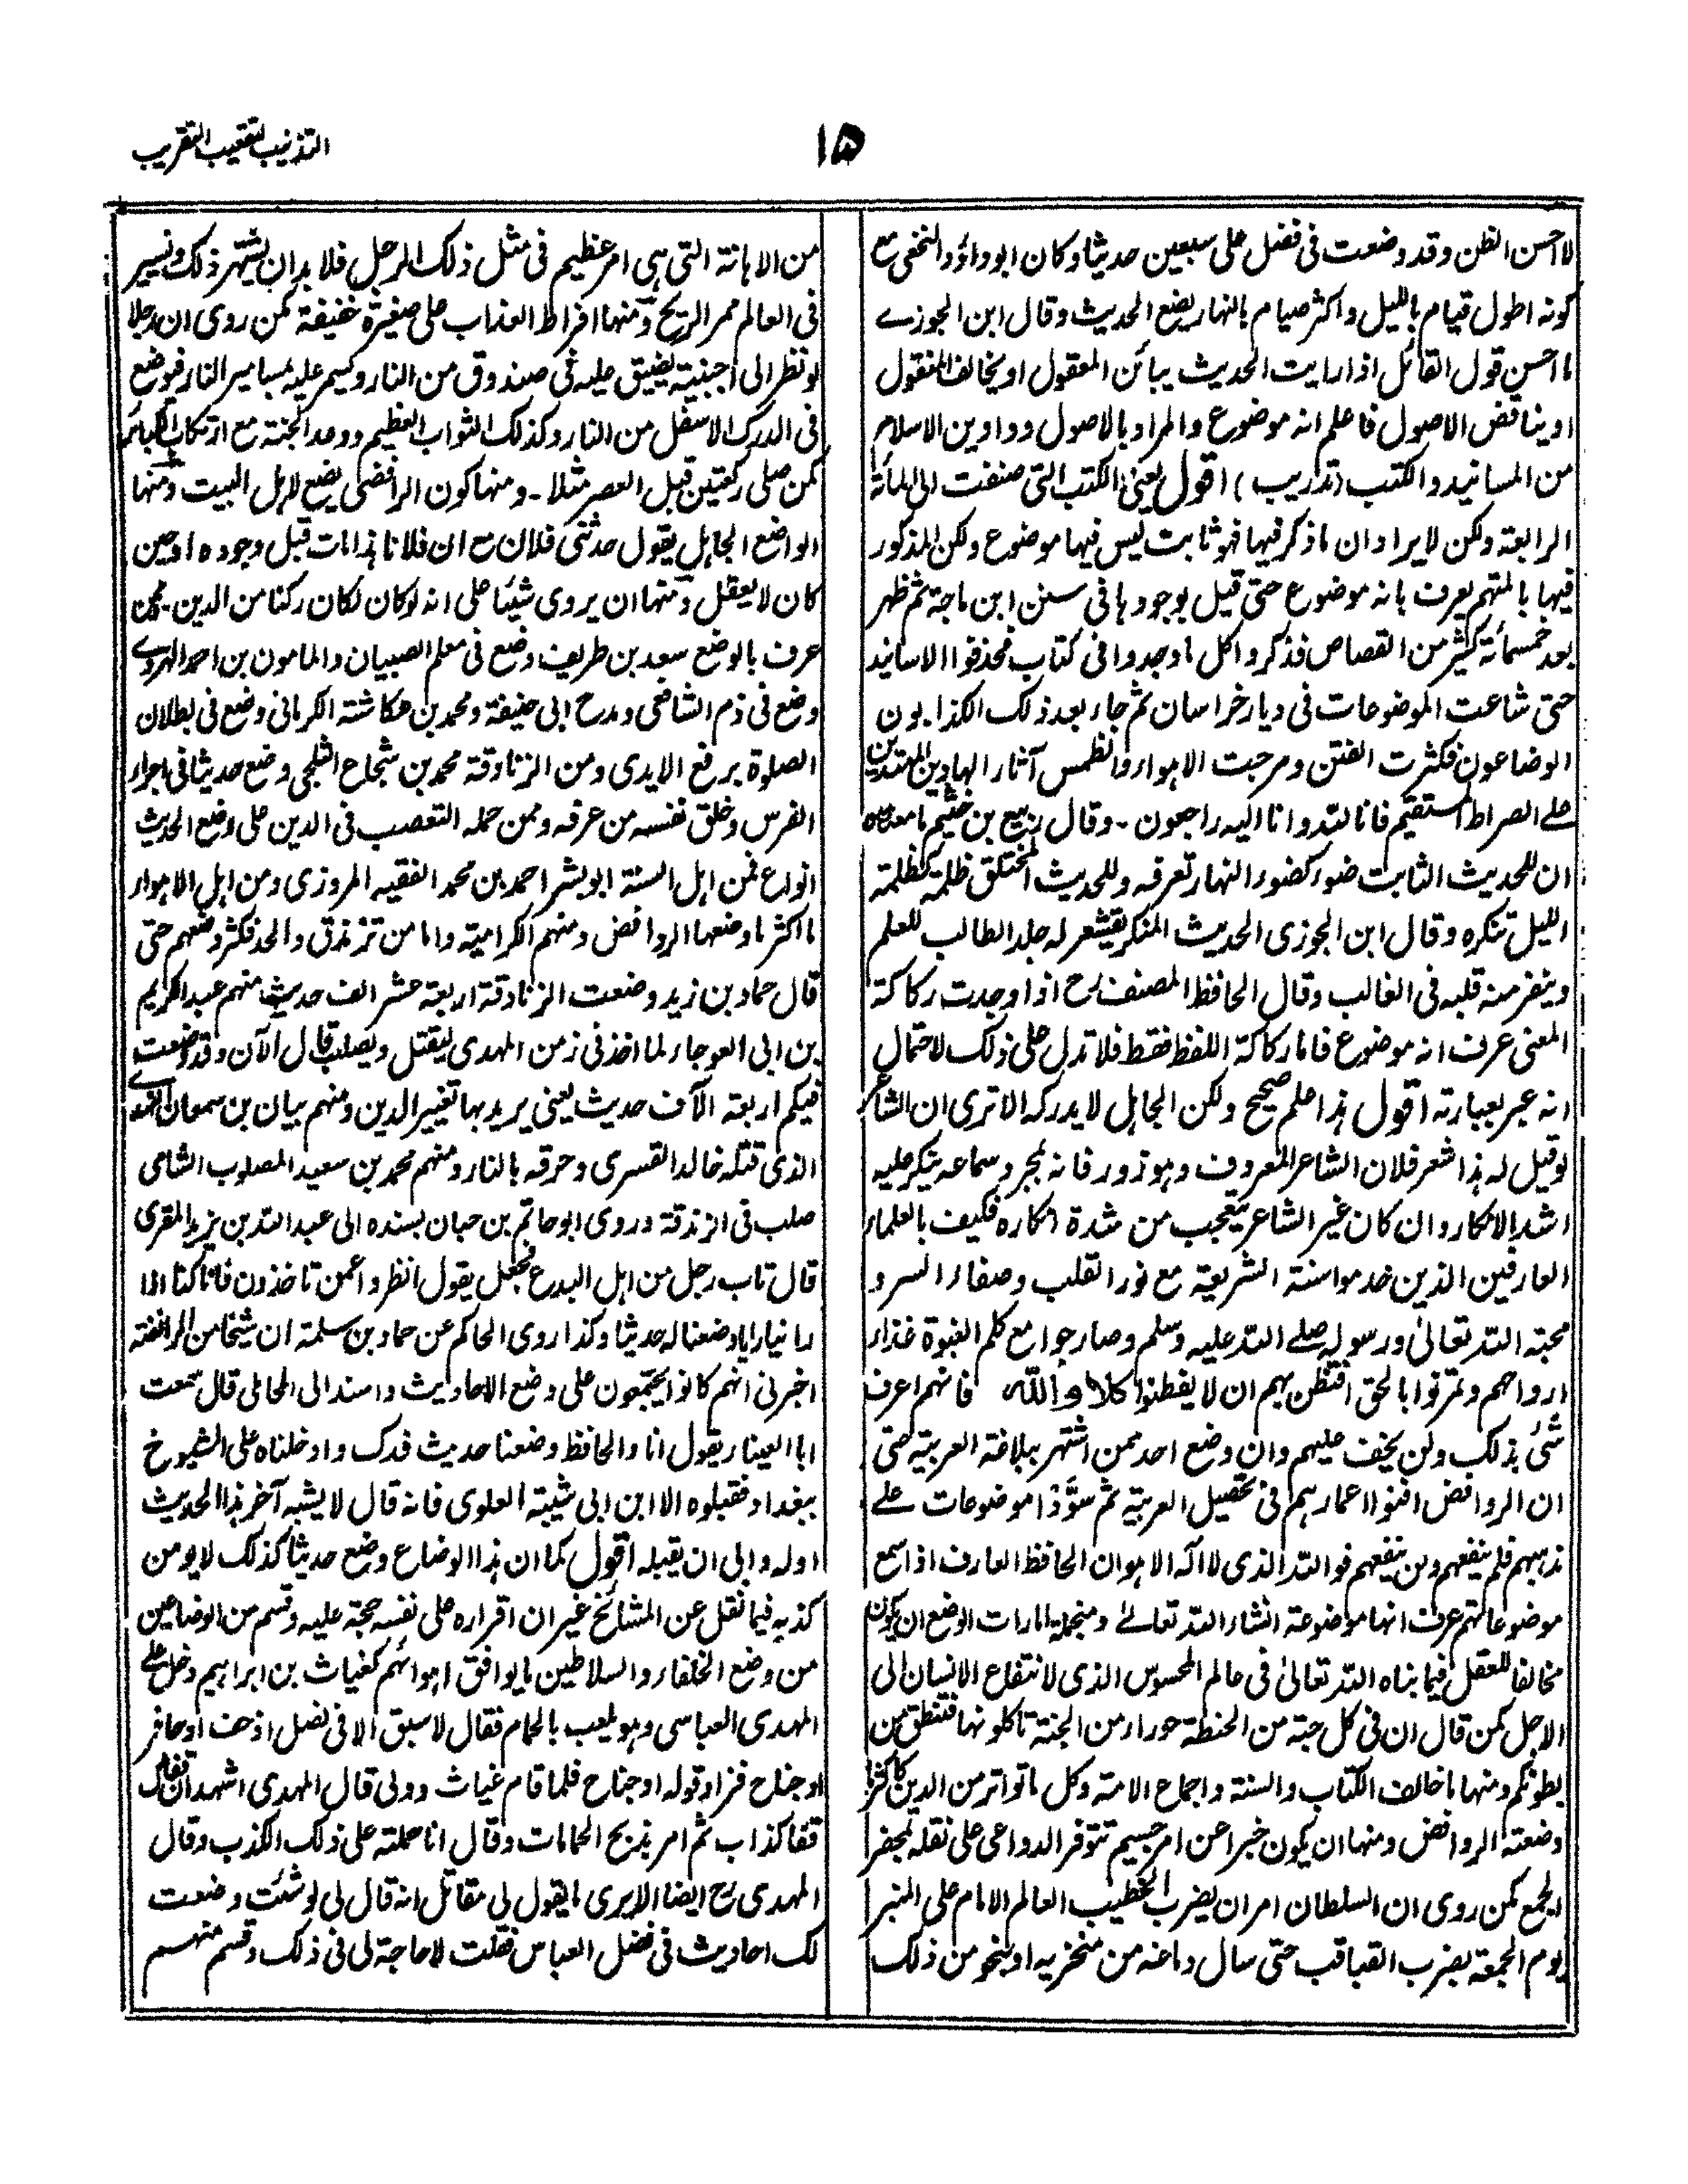 التذنيب لتعقيب التقريب
١٥
لااحسن الظن وقد وضعت فى فضل على سبعين حديثا وكان ابوداؤد النخعى مع
كونه اطول قيام بالليل واكثر صيام بالنهار يضع الحديث وقال ابن الجوزے
ما احسن قول القائل اذا رايت الحديث يباين المعقول او يخالف المنقول
او يناقض الاصول فاعلم انه موضوع والمراد بالاصول دواوين الاسلام
من المسانيد والكتب (تدريب) اقول يعنى الكتب التى صنفت الى المأة
الرابعة ولكن لا يراد ان ما ذكر فيها فهو ثابت ليس فيها موضوع ولكن المذكور
فيها بالمتهم يعرف بانه موضوع حتى قيل بوجودها فى سنن ابن ماجة ثم ظهر
بعد خمسمائة كثير من القصاص فذكروا كل ما وجدوا فى كتاب فحذفوا الاسانيد
حتى شاعت الموضوعات فى ديار خراسان ثم جاء بعد ذلك الكذابون
الوضاعون فكثرت الفتن ومرجت الاهواء وانطمس آثار الهادين المهتدين
علے الصراط المستقيم فانا لله وانا اليه راجعون - وقال ربيع بن خثيم ما معناه
ان للحديث الثابت ضوء كضوء النهار تعرفه وللحديث المختلق ظلمة كظلمة
الليل تنكره وقال ابن الجوزى الحديث المنكر يقشعر له جلد الطالب للعلم
وينفر منه قلبه فى الغالب وقال الحافظ المصنف رح اذا وجدت ركاكة
المعنى عرف انه موضوع فاما ركاكة اللفظ فقط فلا تدل على ذلك لاحتمال
انه عبر بعبارته اقول هذا علم صحيح ولكن الجاهل لا يدركه الا ترى ان الشاعر
لو قيل له هذا شعر فلان الشاعر المعروف وهو زور فانه بمجرد سماعه ينكر عليه
اشد الانكار وان كان غير الشاعر يتعجب من شدة انكاره فكيف بالعلماء
العارفين الذين خدموا سنة الشريعة مع نور القلب وصفاء السر و
محبة الله تعالىٰ ورسوله صلے الله عليه وسلم وصار جوامع كلم النبوة غذاء
ارواحهم وتمرنوا بالحق افتظن بهم ان لا يفطنوا كلا والله فانهم اعرف
شئ بذلك ولن يخف عليهم وان وضع احد ممن اشتهر ببلاغة العربية حتى
ان الروافض افنوا اعمارهم فى تحصيل العربية ثم سوّدوا موضوعات علے
مذهبهم فلم ينفعهم ولن ينفعهم فو الله الذى لا اله الا هو ان الحافظ العارف اذا سمع
موضوعاتهم عرف انها موضوعة انشاء الله تعالےٰ ومنجملة امارات الوضع ان يكون
مخالفا للعقل فيما بناه الله تعالىٰ فى عالم المحسوس الذى لانتفاع الانسان الى
الاجل كمن قال ان فى كل حبة من الحنطة حوراء من الجنة تاكلونها فتنطق من
بطونكم ومنها ما خالف الكتاب والسنة واجماع الامة وكل ما تواتر من الدين كاكثر ما
وضعته الروافض ومنها ان يكون خبرا عن امر جسيم تتوفر الدواعى على نقله بمحضر
الجمع كمن روى ان السلطان امر ان يضرب الخطيب العالم الامام على المنبر
يوم الجمعة بضرب القباقب حتى سال دماغه من منخريه او بنحو من ذلك
من الاهانة التى هى امر عظيم فى مثل ذلك الرجل فلا بد ان يشتهر ذلك ويسير
فى العالم ممر الريح ومنها افراط العذاب على صغيرة خفيفة كمن روى ان رجلا
لو نظر الى اجنبية يضيق عليه فى صندوق من النار ويسمر عليه بمسامير النار فوضع
فى الدرك الاسفل من النار وكذلك الثواب العظيم ووعد الجنة مع ارتكاب الكبائر
كمن صلى ركعتين قبل العصر مثلا - ومنها كون الرافضى يضع لاهل البيت ومنها
الواضع الجاهل يقول حدثنى فلان مع ان فلانا هذا مات قبل وجوده او حين
كان لا يعقل ومنها ان يروى شيئا على انه لو كان لكان ركنا من الدين - فممن
عرف بالوضع سعد بن طريف وضع فى معلم الصبيان والمامون بن احمد الهروے
وضع فى ذم الشافعى ومدح ابى حنيفة ومحمد بن عكاشة الكرمانى وضع فى بطلان
الصلوة برفع الايدى ومن الزنادقة محمد بن شجاع الثلجى وضع حديثا فى اجراء
الفرس وخلق نفسه من عرقه وممن حمله التعصب فى الدين على وضع الحديث
انواع فمن اهل السنة ابو بشر احمد بن محمد الفقيه المروزى ومن اهل الاهواء
ما اكثر ما وضعها الروافض ومنهم الكرامية واما من تزندق والحد فكثر وضعهم حتى
قال حماد بن زيد وضعت الزنادقة اربعة عشر الف حديث منهم عبدالكريم
بن ابى العوجاء لما اخذ فى زمن المهدى ليقتل ويصلب قال الآن وقد وضعت
فيكم اربعة آلاف حديث يعنى يريد بها تغيير الدين ومنهم بيان بن سمعان النهدے
الذى قتله خالد القسرى وحرقه بالنار ومنهم محمد بن سعيد المصلوب الشامى
صلب فى الزندقة وروى ابو حاتم بن حبان بسنده الى عبد الله بن يزيد المقرى
قال تاب رجل من اهل البدع فجعل يقول انظروا عمن تاخذون فانا كنا اذا
راينا رايا وضعنا له حديثا وكذا روى الحاكم عن حماد بن سلمة ان شيخا من الرافضة
اخبرنى انهم كانوا يجتمعون على وضع الاحاديث واسند الى المحاملى قال سمعت
ابا العيناء يقول انا والجاحظ وضعنا حديث فدك وادخلناه على الشيوخ
ببغداد فقبلوه الا ابن ابى شيبة العلوى فانه قال لا يشبه آخر هذا الحديث
اوله وابى ان يقبله اقول كما ان هذا الوضاع وضع حديثا كذلك لا يومن
كذبه فيما نقل عن المشائخ غير ان اقراره على نفسه حجة عليه وقسم من الوضاعين
من وضع الخلفاء والسلاطين ما يوافق اهوائهم كغياث بن ابراهيم دخل علے
المهدى العباسى وهو يلعب بالحمام فقال لا سبق الا فى نصل او خف او حافر
او جناح فزاد قوله او جناح فلما قام غياث وولى قال المهدى اشهد ان قفاك
قفا كذاب ثم امر بذبح الحمامات وقال انا حملته على ذلك الكذب وقال
المهدى رح ايضا الا يرى ما يقول لى مقاتل انه قال لى لو شئت وضعت
لك احاديث فى فضل العباس فقلت لا حاجة لى فى ذلك وقسم منهم